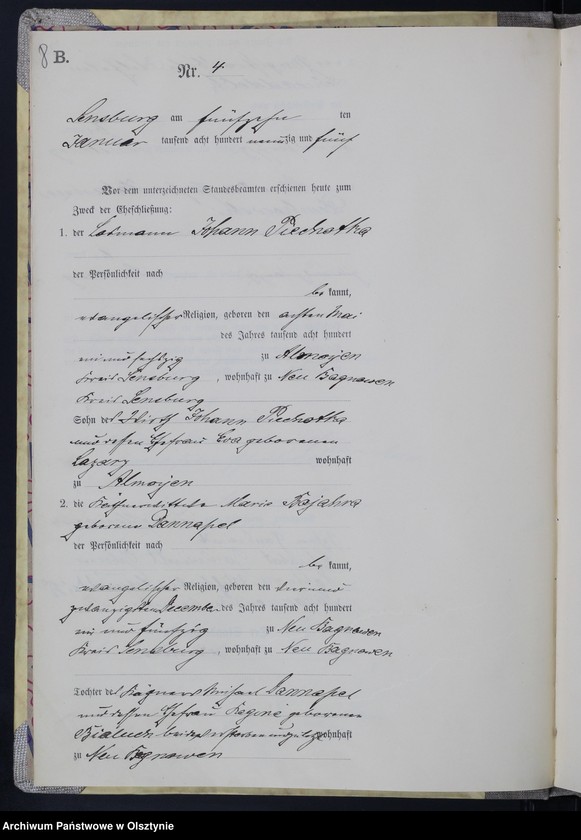 8
B.
Nr. 4
Sensburg am fünfzehn ten
Januar tausend acht hundert neunzig und fünf
Vor dem unterzeichneten Standesbeamten erschienen heute zum
Zweck der Eheschließung:
1. der Losmann Johann Piechottka
der Persönlichkeit nach
be kannt,
evangelischer Religion, geboren den achten Mai
des Jahres tausend acht hundert
ein und sechzig zu Almoyen
Kreis Sensburg, wohnhaft zu Neu Bagnowen
Kreis Sensburg
Sohn des Wirth Johann Piechottka
und dessen Ehefrau Eva geborenen
Lazary wohnhaft
zu Almoyen
2. die Käthnerwittwe Marie
geborene Dannapel
der Persönlichkeit nach
be kannt,
evangelischer Religion, geboren den
zwanzigsten December des Jahres tausend acht hundert
ein und fünfzig zu Neu Bagnowen
Kreis Sensburg, wohnhaft zu Neu Bagnowen
Tochter des Michael Dannapel
und dessen Ehefrau Regine geborenen
beide verstorben und zuletzt wohnhaft
zu Neu Bagnowen
Archiwum Państwowe w Olsztynie